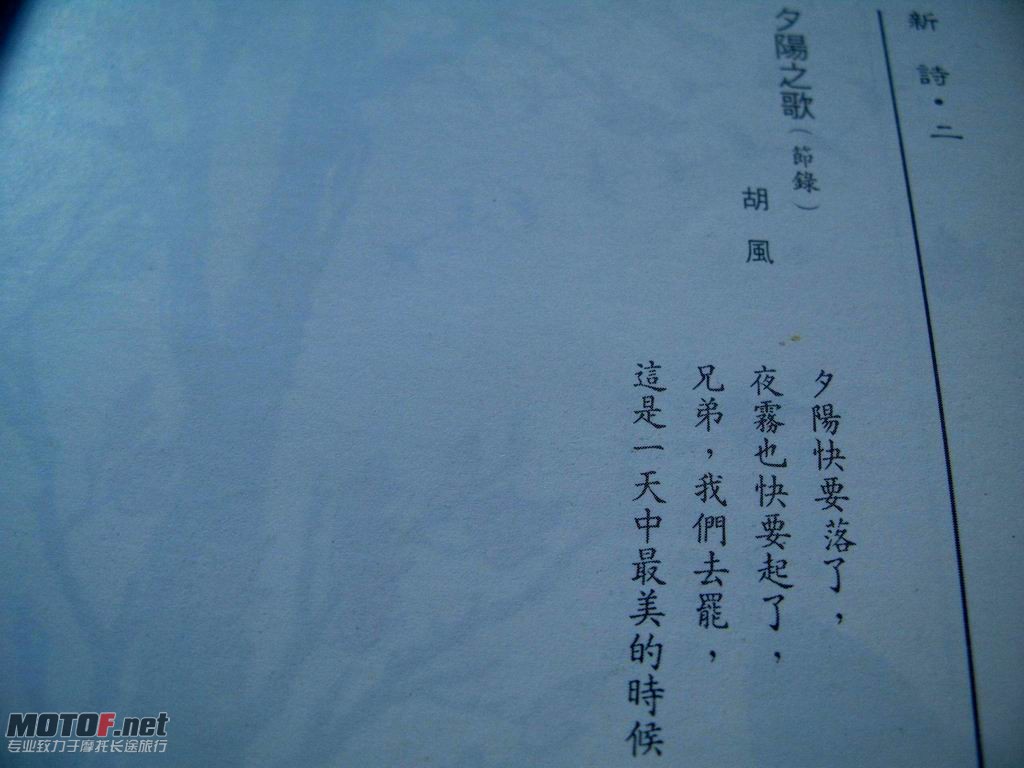 新詩·二
夕陽之歌（節錄）
胡風
夕陽快要落了，
夜霧也快要起了，
兄弟，我們去罷，
這是一天中最美的時候
MOTOF.net
专业致力于摩托长途旅行